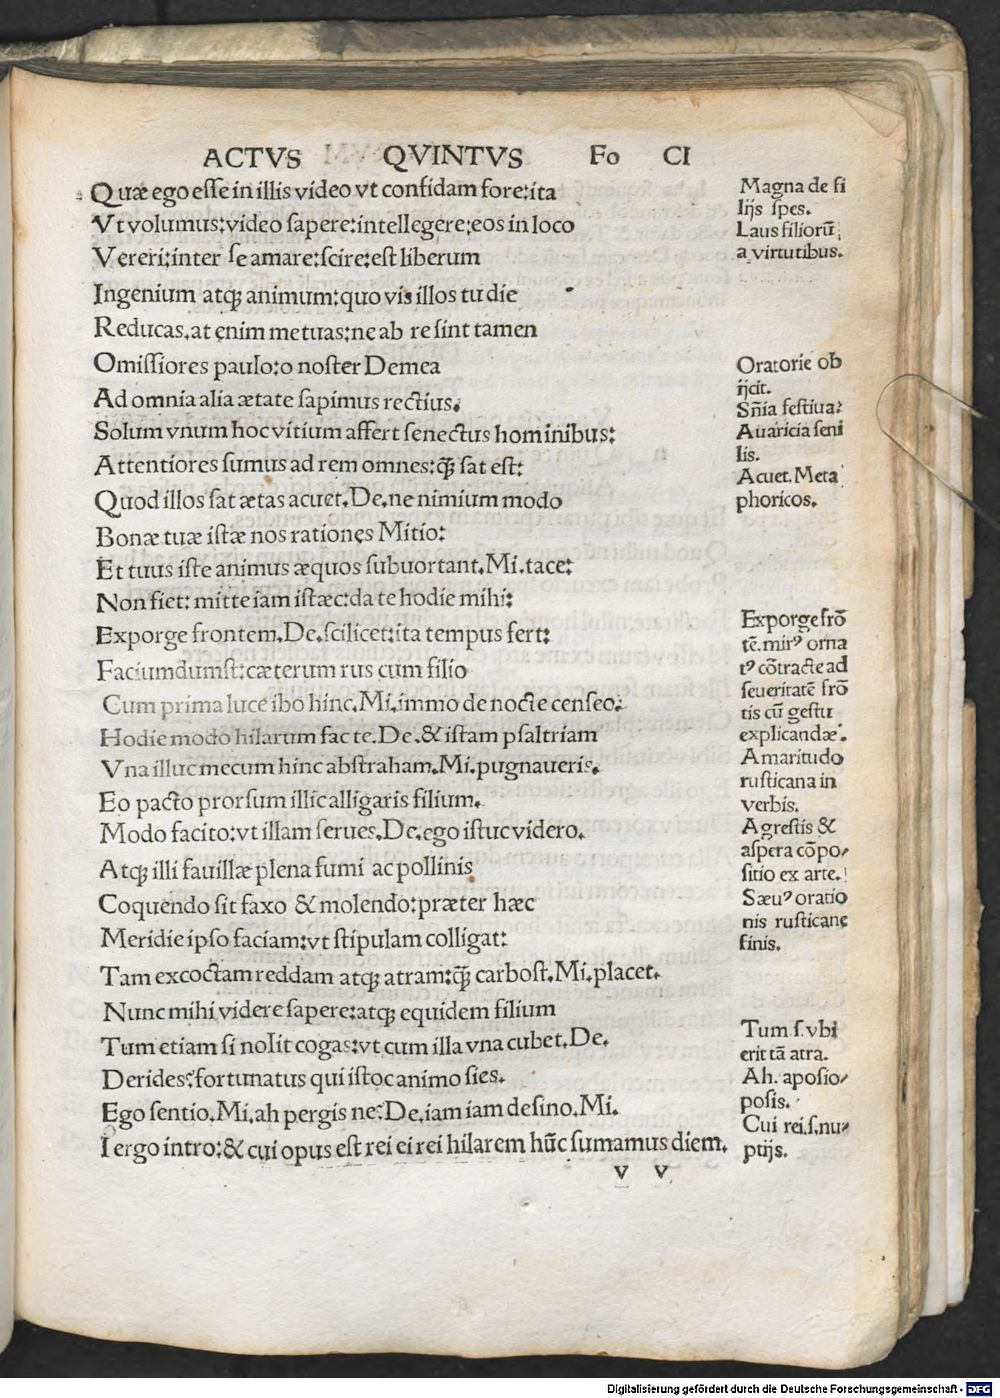 ACTVS QVINTVS Fo CI
Quæ ego eſſe in illis video vt confidam fore:ita
Vt volumus:video ſapere:intellegere:eos in loco
Vereri:inter ſe amare:ſcire:eſt liberum
Ingenium atqꝫ animum:quo vis illos tu die
Reducas.at enim metuas:ne ab re ſint tamen
Omiſſiores paulo:o noſter Demea
Ad omnia alia ætate ſapimus rectius.
Solum vnum hoc vitium affert ſenectus hominibus:
Attentiores ſumus ad rem omnes:qꝫ̃ ſat eſt:
Quod illos ſat ætas acuet.De.ne nimium modo
Bonæ tuæ iſtæ nos rationes Mitio:
Et tuus iſte animus æquos ſubuortant.Mi.tace:
Non fiet: mitte iam iſtæc:da te hodie mihi:
Exporge frontem.De.ſcilicet:ita tempus fert:
Faciumdumſt:cæterum rus cum filio
Cum prima luce ibo hinc.Mi.immo de nocte cenſeo:
Hodie modo hilarum fac te.De.& iſtam pſaltriam
Vna illuc mecum hinc abſtraham.Mi.pugnaueris.
Eo pacto prorſum illic alligaris filium.
Modo facito:vt illam ſerues.De.ego iſtuc videro.
Atqꝫ illi fauillæ plena fumi ac pollinis
Coquendo ſit faxo & molendo:præter hæc
Meridie ipſo faciam:vt ſtipulam colligat:
Tam excoctam reddam atqꝫ atram:qꝫ̃ carboſt.Mi.placet.
Nunc mihi videre ſapere:atqꝫ equidem filium
Tum etiam ſi nolit cogas:vt cum illa vna cubet.De.
Derides?fortunatus qui iſtoc animo ſies.
Ego ſentio.Mi.ah pergis ne?De.iam iam deſino.Mi.
I ergo intro:& cui opus eſt rei ei rei hilarem hũc ſumamus diem.
v v
Magna de fi
lijs ſpes.
Laus filiorũ
a virtutibus.
Oratorie ob
ijcit.
Sñia feſtiua:
Auaricia ſeni
lis.
Acuet. Meta
phoricos.
Exporge frõ
tẽ. mirꝰ orna
tꝰ cõtracte ad
ſeueritatẽ frõ
tis cũ geſtu
explicandæ.
Amaritudo
ruſticana in
verbis.
Agreſtis &
aſpera cõpo/
ſitio ex arte.
Sæuꝰ oratio
nis ruſticane
finis.
Tum ſ.vbi
erit tã atra.
Ah. apoſio/
poſis.
Cui rei.ſ.nu/
ptijs.
Digitalisierung gefördert durch die Deutsche Forschungsgemeinschaft - DFG